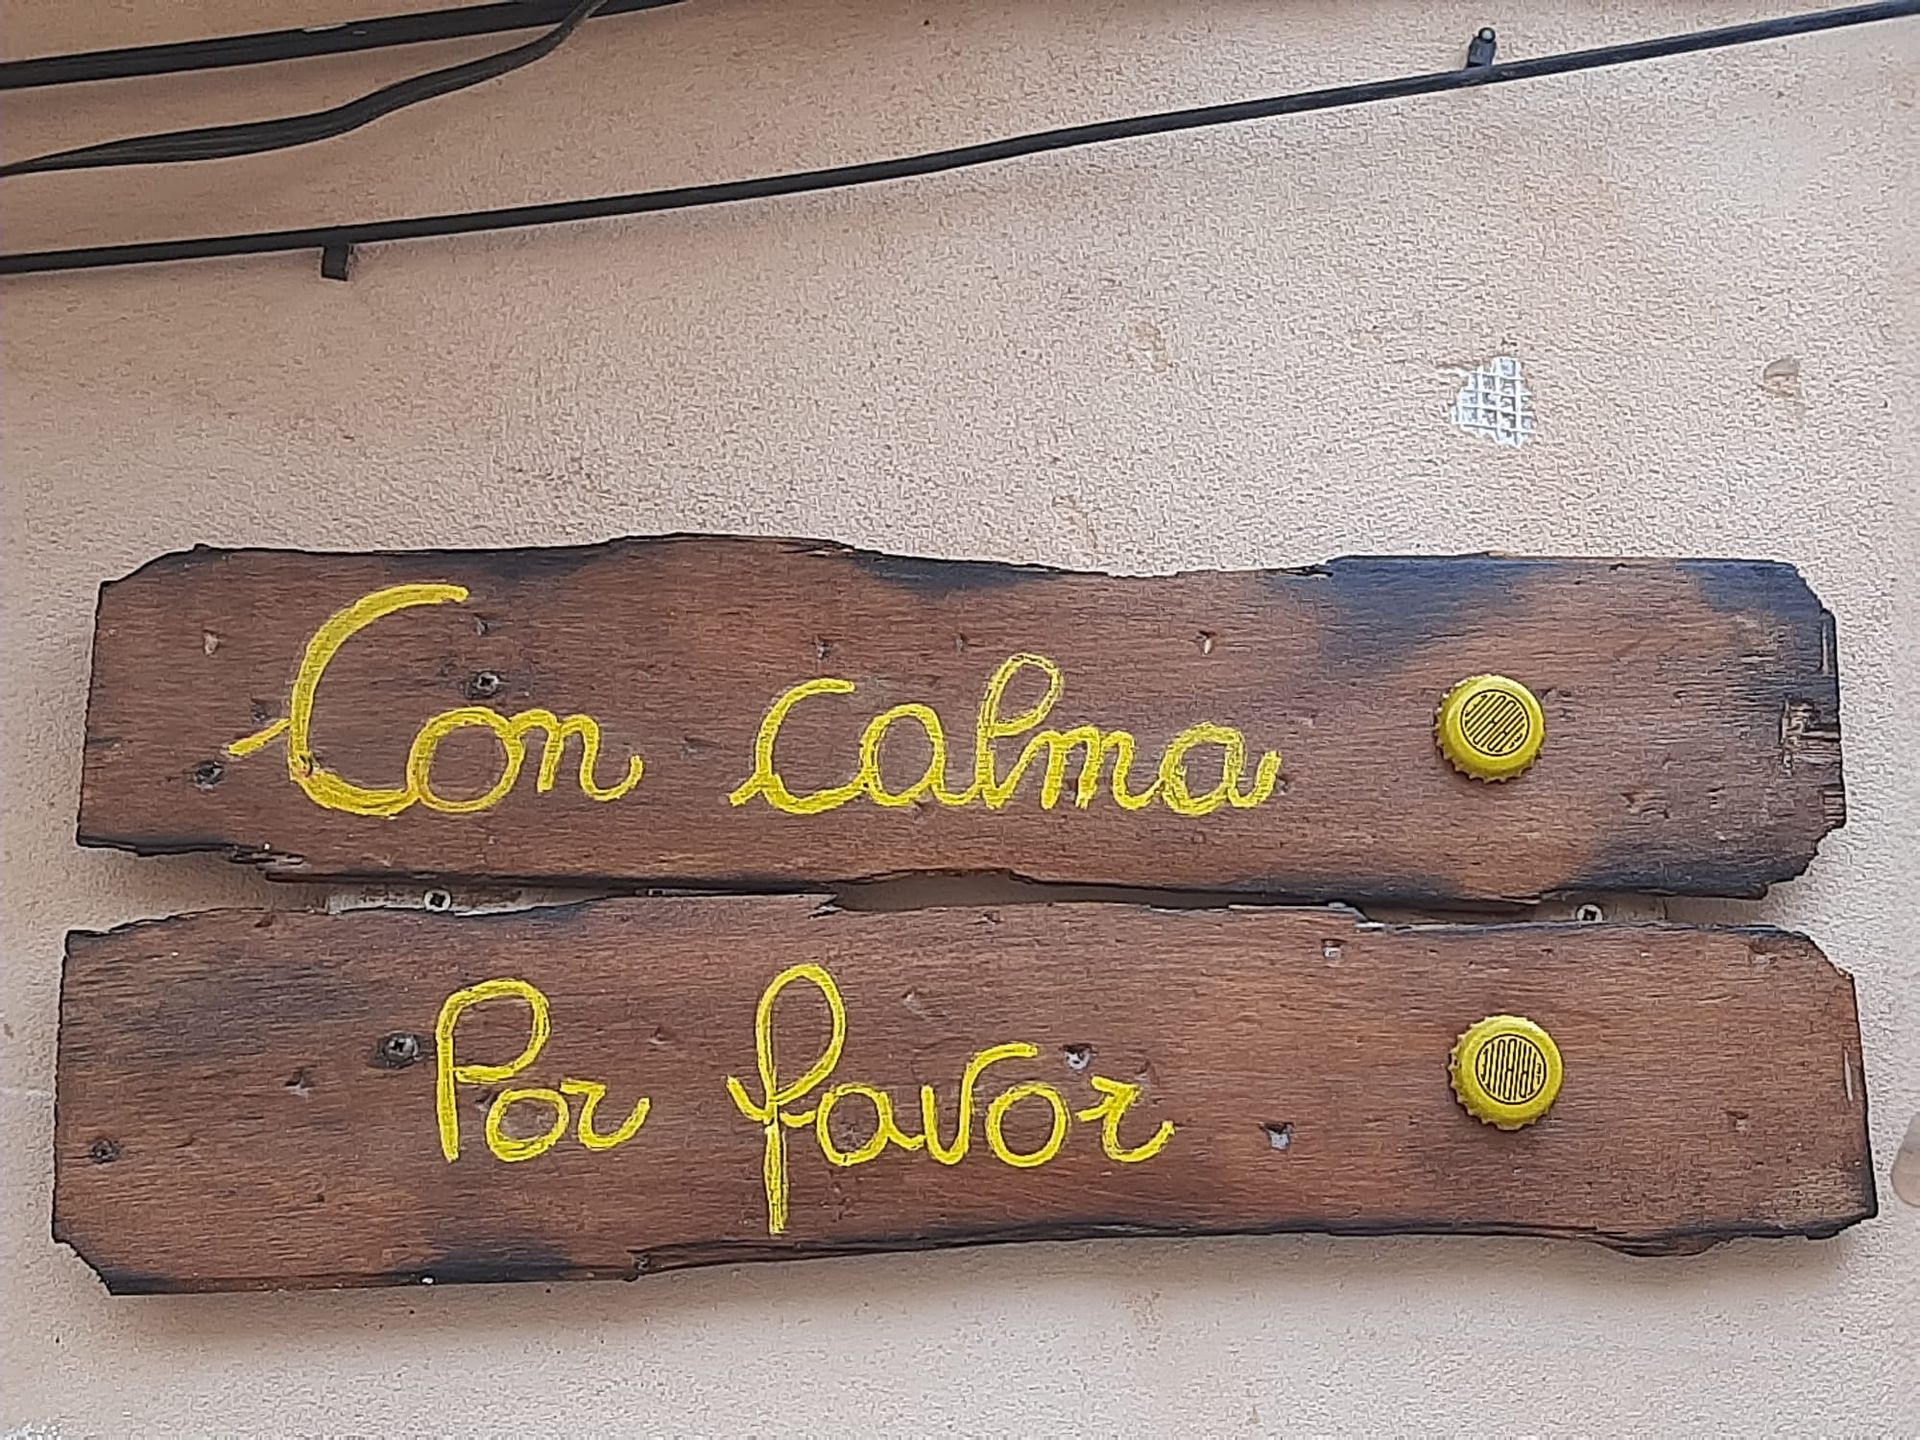 Con calma
Por favor